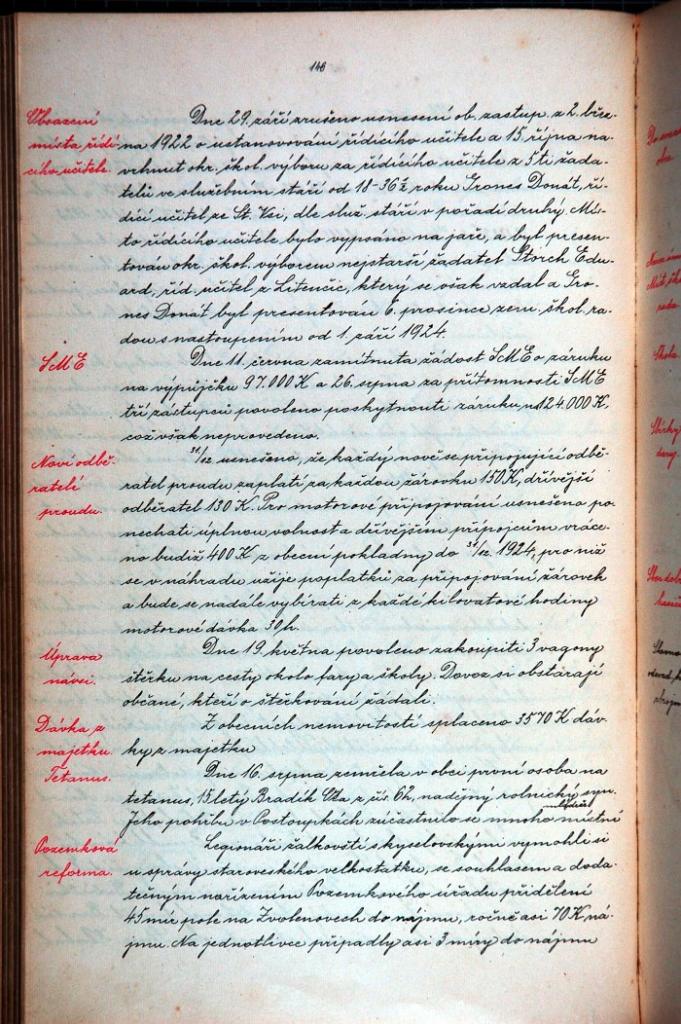 146
Obsazení
místa řídí-
cího učitele.
Dne 29. září zrušeno usnesení ob. zastup. z 2. břez-
na 1922 o ustanovování řídícího učitele a 15. října na-
vrhnut okr. škol. výboru za řídícího učitele z 5ti žada-
telů ve služebním stáří od 18-36½ roku Grones Donát, ří-
dící učitel ze St. Vsi, dle služ. stáří v pořadí druhý. Mís-
to řídícího učitele bylo vypsáno na jaře, a byl presen-
tován okr. škol. výborem nejstarší žadatel Storch Edu-
ard, říd. učitel z Litenčic, který se však vzdal a Gro-
nes Donát byl presentován 6. prosince zem. škol. ra-
dou s nastoupením od 1. září 1924.
SME
Dne 11. června zamítnuta žádost SME o záruku
na výpůjčku 97.000 K a 26. srpna za přítomnosti SME
tří zástupců povoleno poskytnouti záruku na 124.000 K,
což však neprovedeno.
Noví odbě-
ratelé
proudu.
31/12 usneseno, že každý nově se připojující odbě-
ratel proudu zaplatí za každou žárovku 150 K, dřívější
odběratel 130 K. Pro motorové připojování usneseno po-
nechati úplnou volnost a dřívějším přípojcům vráce-
no budiž 400 K z obecní pokladny do 31/12. 1924, pro niž
se v náhradu užije poplatků za připojování žárovek
a bude se nadále vybírati z každé kilovatové hodiny
motorové dávka 30 h.
Úprava
návsi.
Dne 19. května povoleno zakoupiti 3 vagony
štěrku na cesty okolo fary a školy. Dovoz si obstarají
občané, kteří o štěrkování žádali.
Dávka z
majetku
Z obecních nemovitostí splaceno 3570 K dáv-
ky z majetku
Tetanus.
Dne 16. srpna zemřela v obci první osoba na
tetanus, 15letý Bradík z čís. 62, nadějný rolnický syn.
Jeho pohřbu v Postoupkách zúčastnilo se mnoho místní
mládeže
Pozemková
reforma.
Legionáři žalkovští s kyselovskými vymohli si
u správy staroveského velkostatku, se souhlasem a doda-
tečným nařízením Pozemkového úřadu přidělení
45 měr. pole na Zvolenovech do nájmu, ročně asi 70 K ná-
jmu. Na jednotlivce připadly asi 3 míry do nájmu